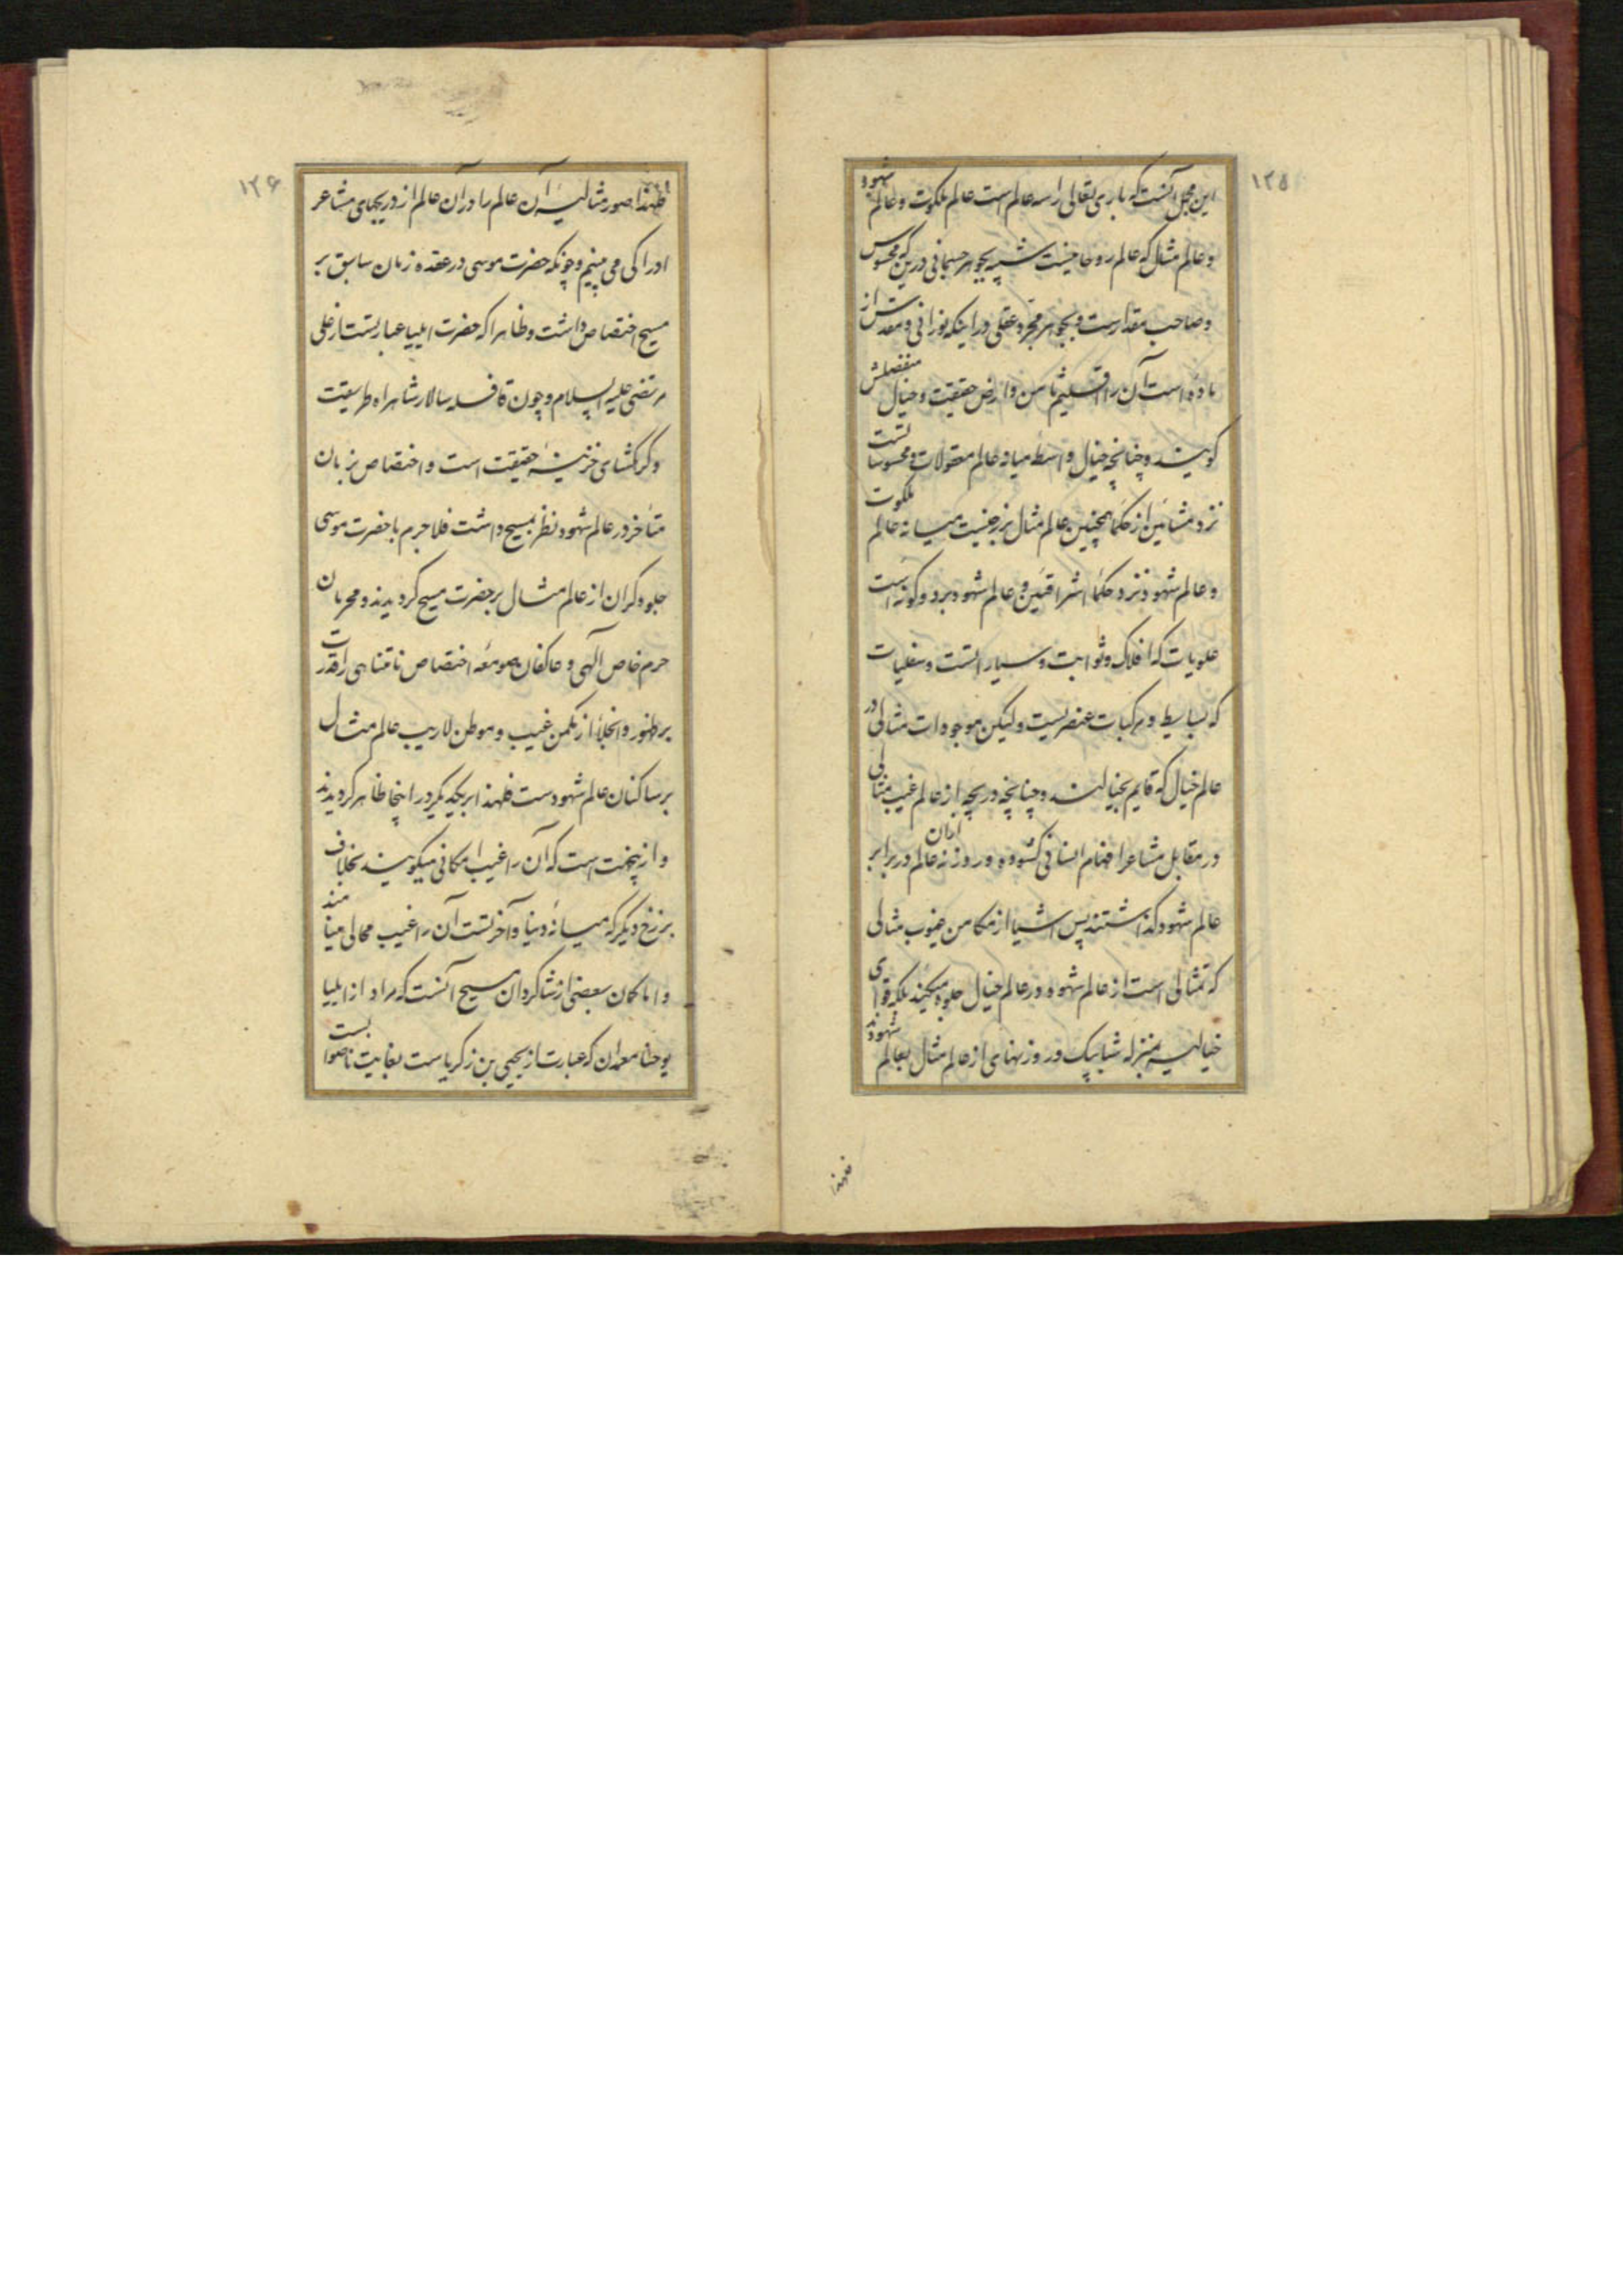 ۱۲۵
این مجمل آنست که باری تعالی را سه عالم است عالم ملکوت و عالم شهود
و عالم مثال که عالم روحانیست شبیه بجوهر جسمانی درین که محسوس
و صاحب مقدارست و بجوهر مجرد عقلی در اینکه نورانی و مقدس از
ماده است آن را اقلیم ثامن و ارض حقیقت و خیال منفصلش
گویند و چنانچه خیال واسطه میانه عالم معقولات و محسوساتست
نزد مشائین از حکما همچنین عالم مثال برزخیست میانه عالم ملکوت
و عالم شهود نزد حکماء اشراقئین و عالم شهود بر دو گونه است
علویات که افلاک و ثوابت و سیاراتست و سفلیات
که بسایط و مرکبات عنصریست ولیکن موجودات مثالی در
عالم خیال که قایم بخیالند و چنانچه دریچه از عالم غیب مثالی
در مقابل مشاعر افهام انسانی گشوده و روزنه عالم در برابر
عالم شهود گذاشتند پس اشیا از مکامن غیوب مثالی
که تمثالی است از عالم شهود در عالم خیال جلوه میکنند بلکه قوای
خیالیه بمنزله شبابیک و روزنهای از عالم مثال بعالم شهودند
فلهذا
۱۲۶
فلهذا صور مثالیه آن عالم را در آن عالم از دریچهای مشاعر
ادراکی می بینیم و چونکه حضرت موسی در عقده زمان سابق بر
مسیح اختصاص داشت و ظاهرا که حضرت ایلیا عبارتست از علی
مرتضی علیه السلام و چون قافله سالار شاهراه طریقت
و گرهگشای خزینه حقیقت است و اختصاص بزمان
متأخر در عالم شهود نظر بمسیح داشت فلاجرم با حضرت موسی
جلوه گران از عالم مثال بر حضرت مسیح گردیدند و محرمان
حرم خاص آلهی و عاکفان صومعه اختصاص نامتناهی را قدرت
بر ظهور و انجلاء از مکمن غیب و موطن لاریب عالم مثال
بر ساکنان عالم شهودست فلهذا بر یکدیگر در اینجا ظاهر گردیدند
و ازینجهت است که آن را غیب امکانی میگویند بخلاف
برزخ دیگر که میانه دنیا و آخرتست آن را غیب محالی مینامند
و اما گمان بعضی از شاگردان مسیح آنست که مراد از ایلیا
یوحنا معمدان که عبارت از یحیی بن زکریاست بغایت ناصوابست